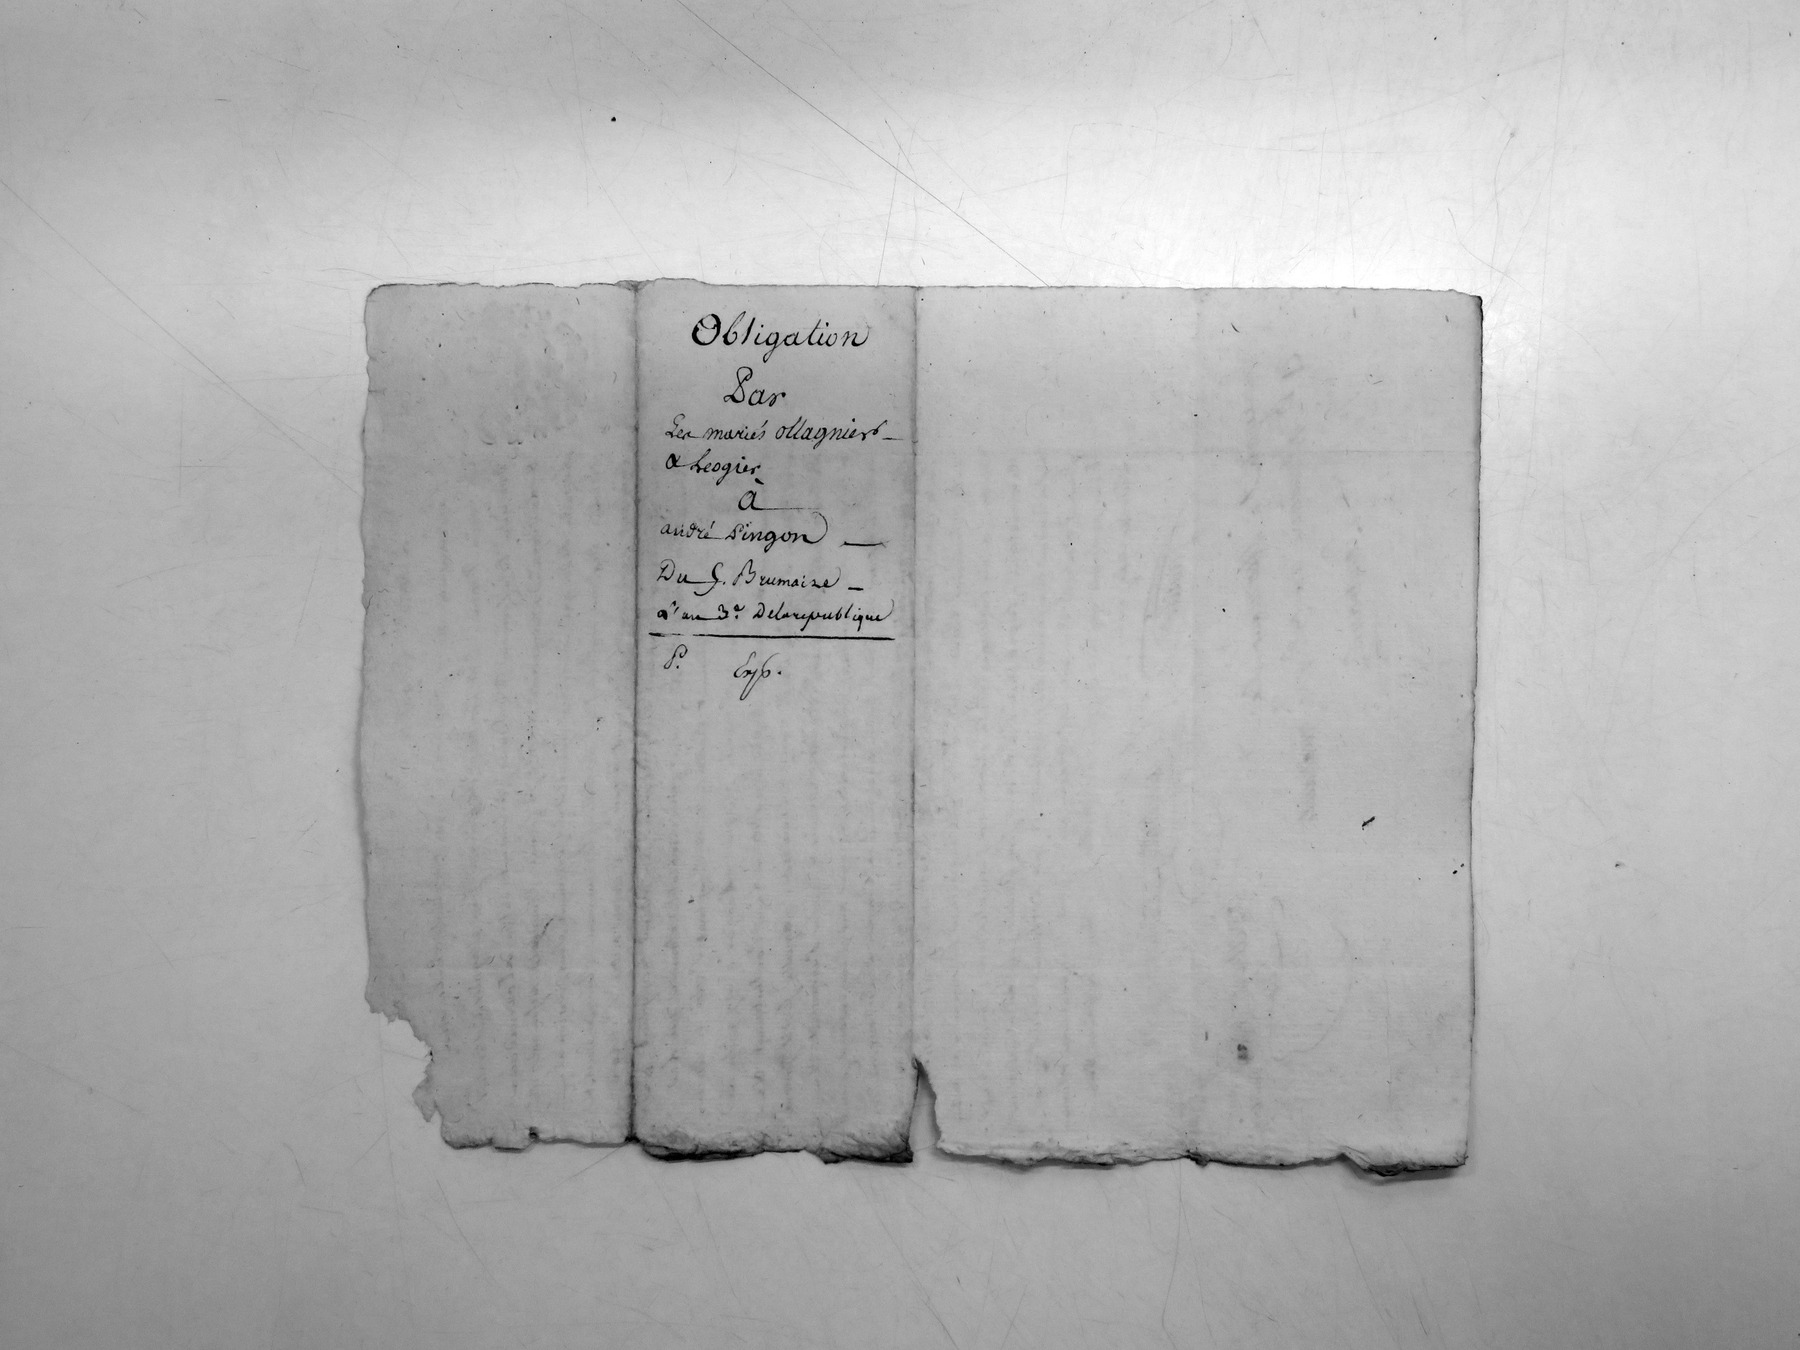 Obligation
Par
Les mariés ollagniers
& Leogier
à
andré Pingon
Du 5. Brumaire
L'an 3e. Delarepublique
P. Exp.